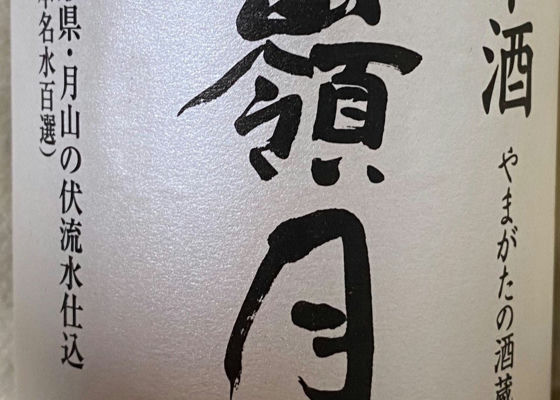 酒
やまがたの酒蔵
嶺月
県・月山の伏流水仕込
名水百選）